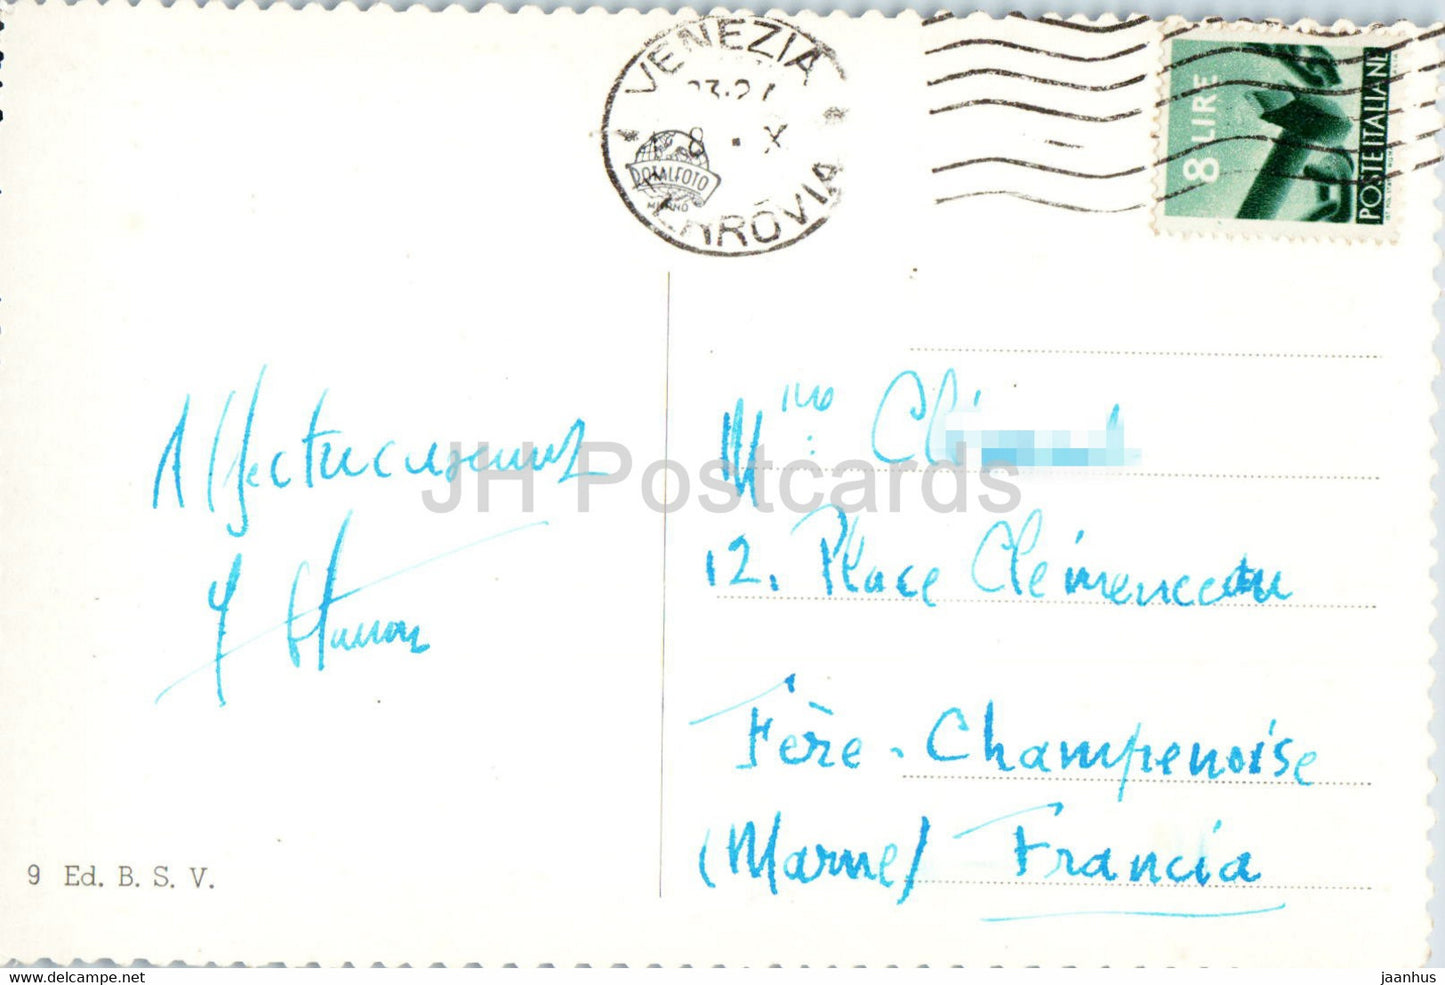 VENEZIA
23-24
8 · X
FERROVIA
ROTALFOTO
MILANO
8 LIRE
POSTE ITALIANE
Affectueusement
Mme Cl
12. Place Clémenceau
Fère-Champenoise
(Marne) Francia
JH Postcards
9 Ed. B. S. V.
www.delcampe.net
jaanhus